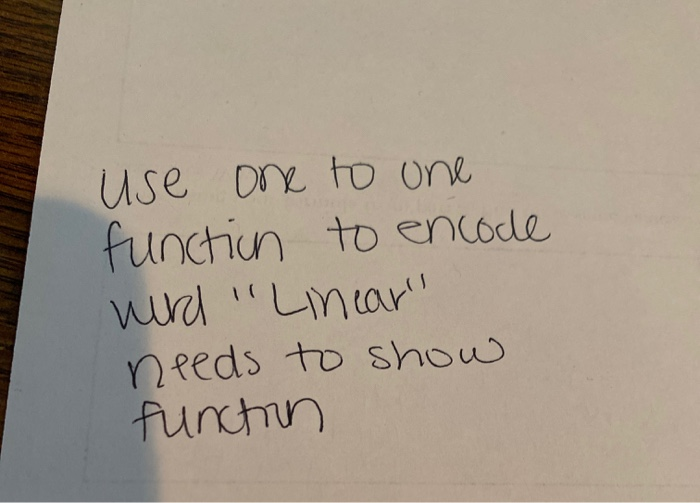 use one to one
function to encode
word "Linear"
needs to show
function